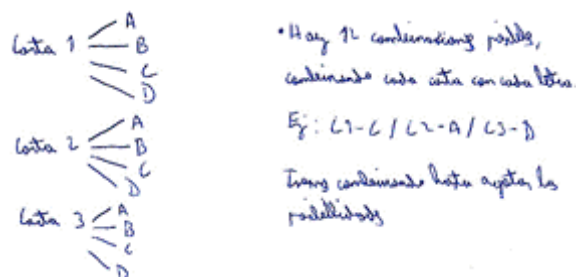 Carta 1
A
B
C
D
Carta 2
A
B
C
D
Carta 3
A
B
C
D
• Hay 12 combinaciones posibles,
combinando cada carta con cada letra.
Ej: C1-C / C2-A / C3-D
combinando hasta agotar las
posibilidades